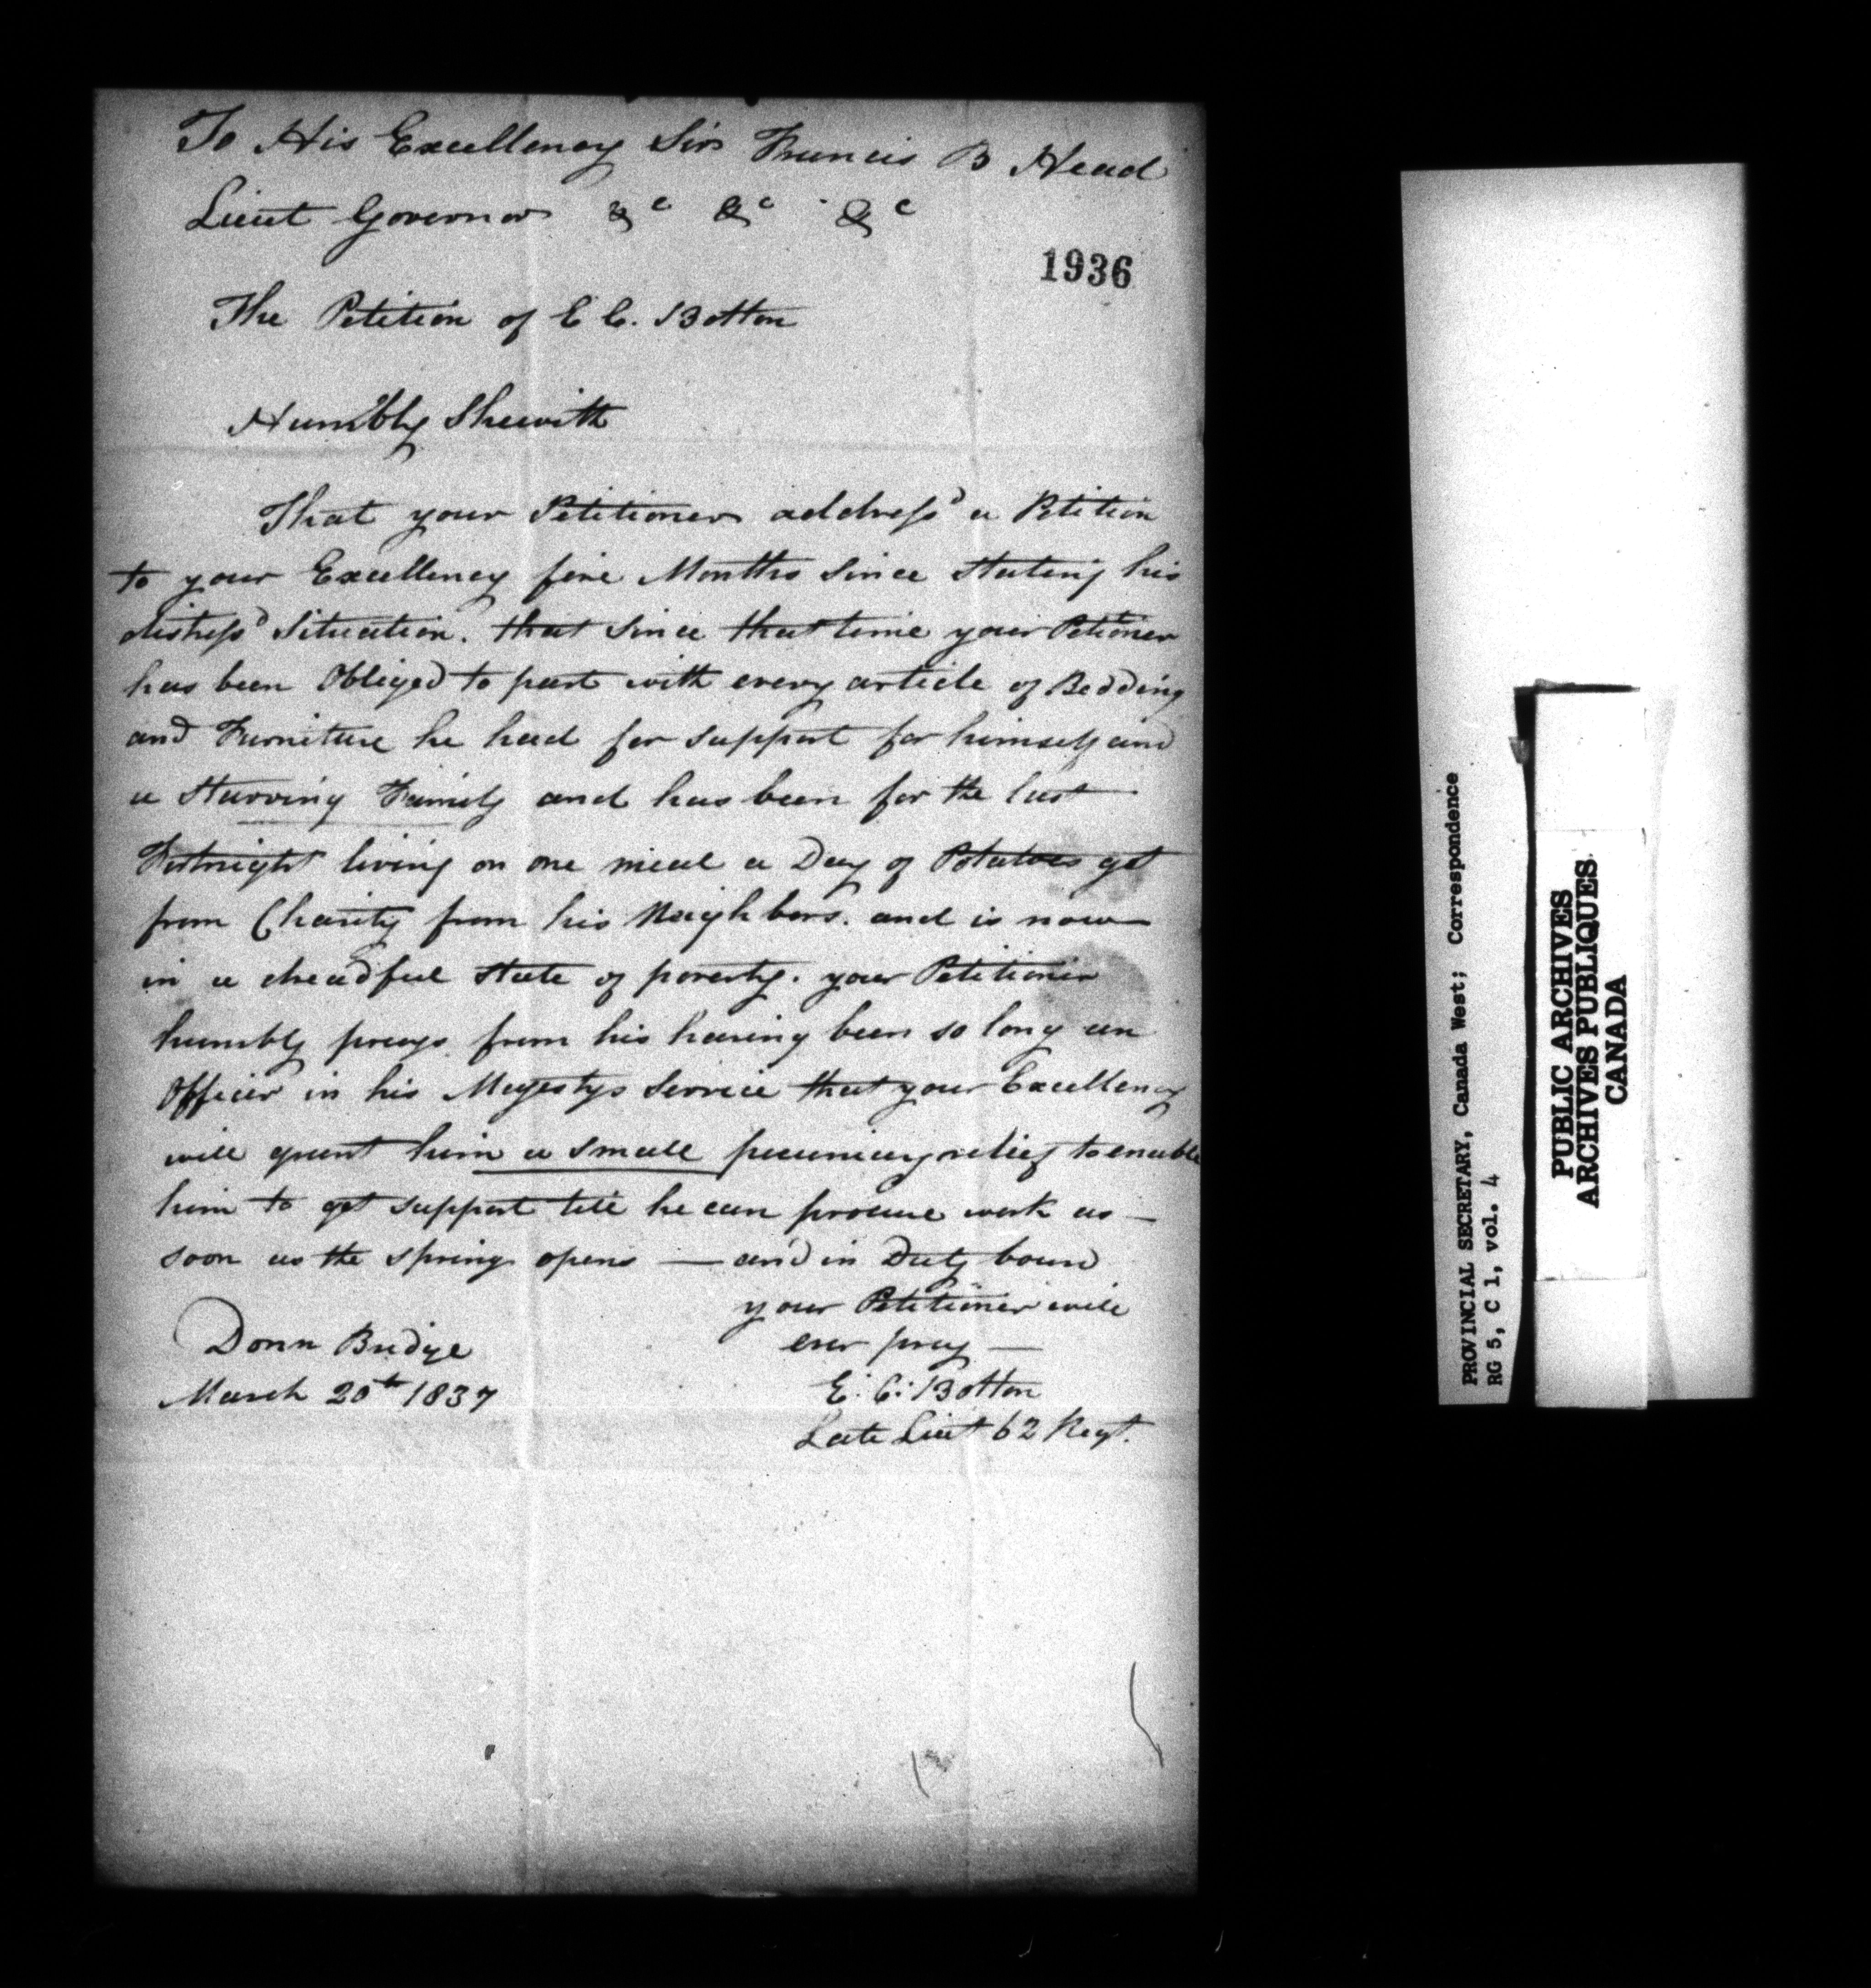 To His Excellency Sir Francis B Head
Lieut Governor &c &c &c
1936
The Petition of E C. Botton
Humbly Shewith
That your Petitioner address'd a Petition
to your Excellency five Months since stating his
distress'd Situation. that since that time your Petitioner
has been Obliged to part with every article of Bedding
and Furniture he had for support for himself and
a Starving Family and has been for the last
Fortnight living on one meal a Day of Potatoes got
from Charity from his Neighbors. and is now
in a dreadful state of poverty. your Petitioner
humbly prays from his having been so long an
Officer in his Majestys Service that your Excellency
will grant him a small pecuniary relief to enable
him to get support till he can procure work as
soon as the spring opens — and in Duty bound
your Petitioner will
ever pray —
Donn Bridge
March 20th 1837
E. C. Botton
Late Lieut 62 Regt.
PROVINCIAL SECRETARY, Canada West; Correspondence
RG 5, C 1, vol. 4
PUBLIC ARCHIVES
ARCHIVES PUBLIQUES
CANADA